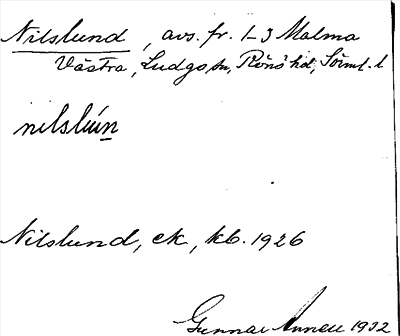 Nilslund, avs. fr. 1-3 Malma
Västra, Ludgo sn, Rönö hd, Söml. l
nilslún
Nilslund, ek, kb. 1926
Gunnar Annell 1932